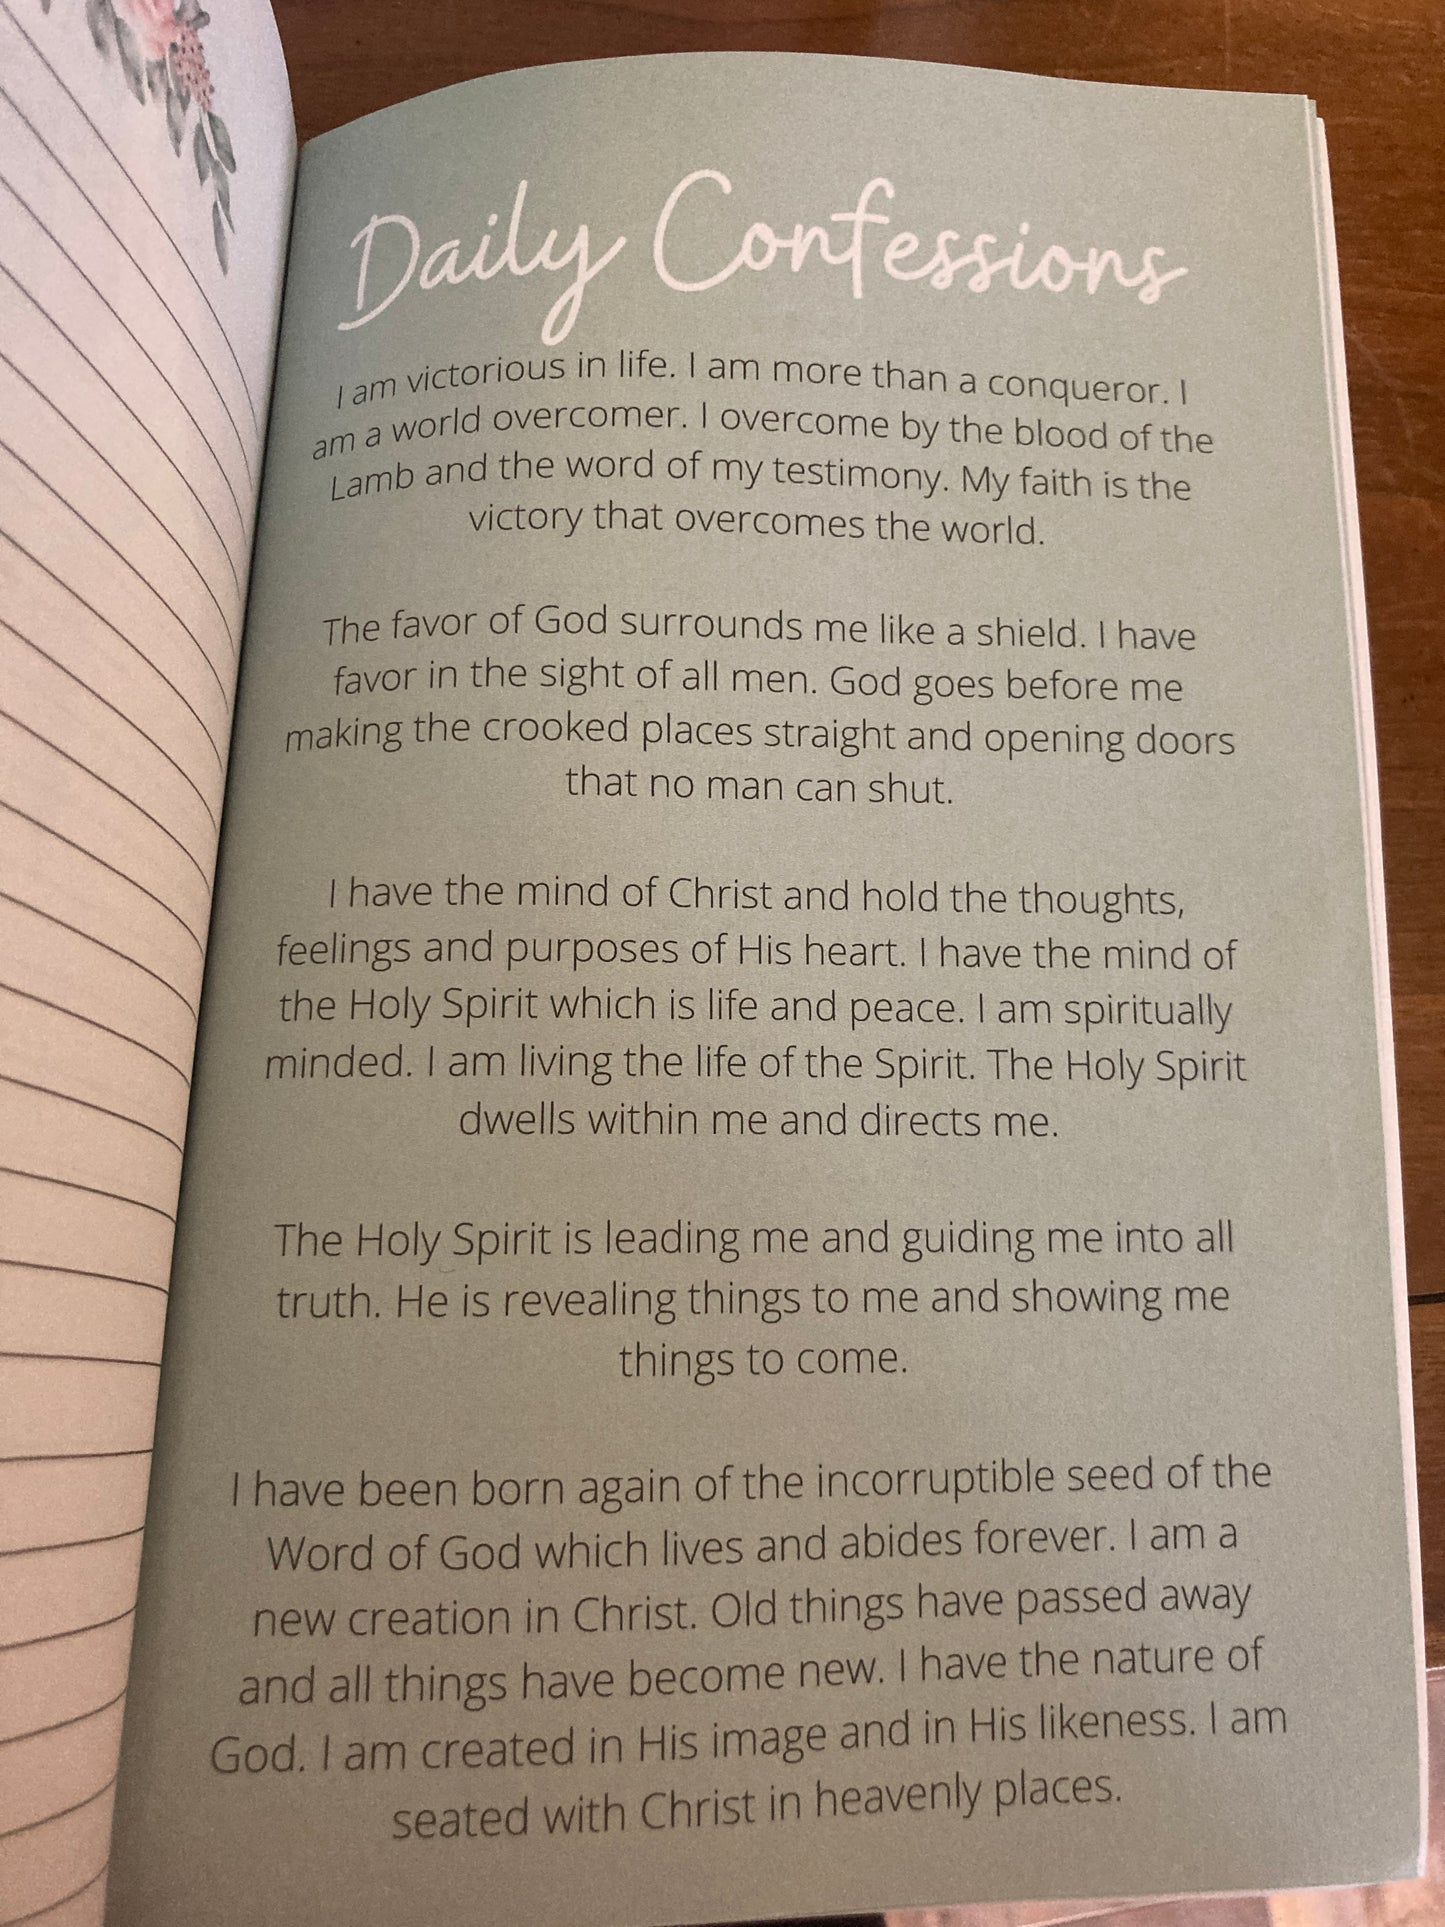 Daily Confessions
I am victorious in life. I am more than a conqueror. I
am a world overcomer. I overcome by the blood of the
Lamb and the word of my testimony. My faith is the
victory that overcomes the world.
The favor of God surrounds me like a shield. I have
favor in the sight of all men. God goes before me
making the crooked places straight and opening doors
that no man can shut.
I have the mind of Christ and hold the thoughts,
feelings and purposes of His heart. I have the mind of
the Holy Spirit which is life and peace. I am spiritually
minded. I am living the life of the Spirit. The Holy Spirit
dwells within me and directs me.
The Holy Spirit is leading me and guiding me into all
truth. He is revealing things to me and showing me
things to come.
I have been born again of the incorruptible seed of the
Word of God which lives and abides forever. I am a
new creation in Christ. Old things have passed away
and all things have become new. I have the nature of
God. I am created in His image and in His likeness. I am
seated with Christ in heavenly places.